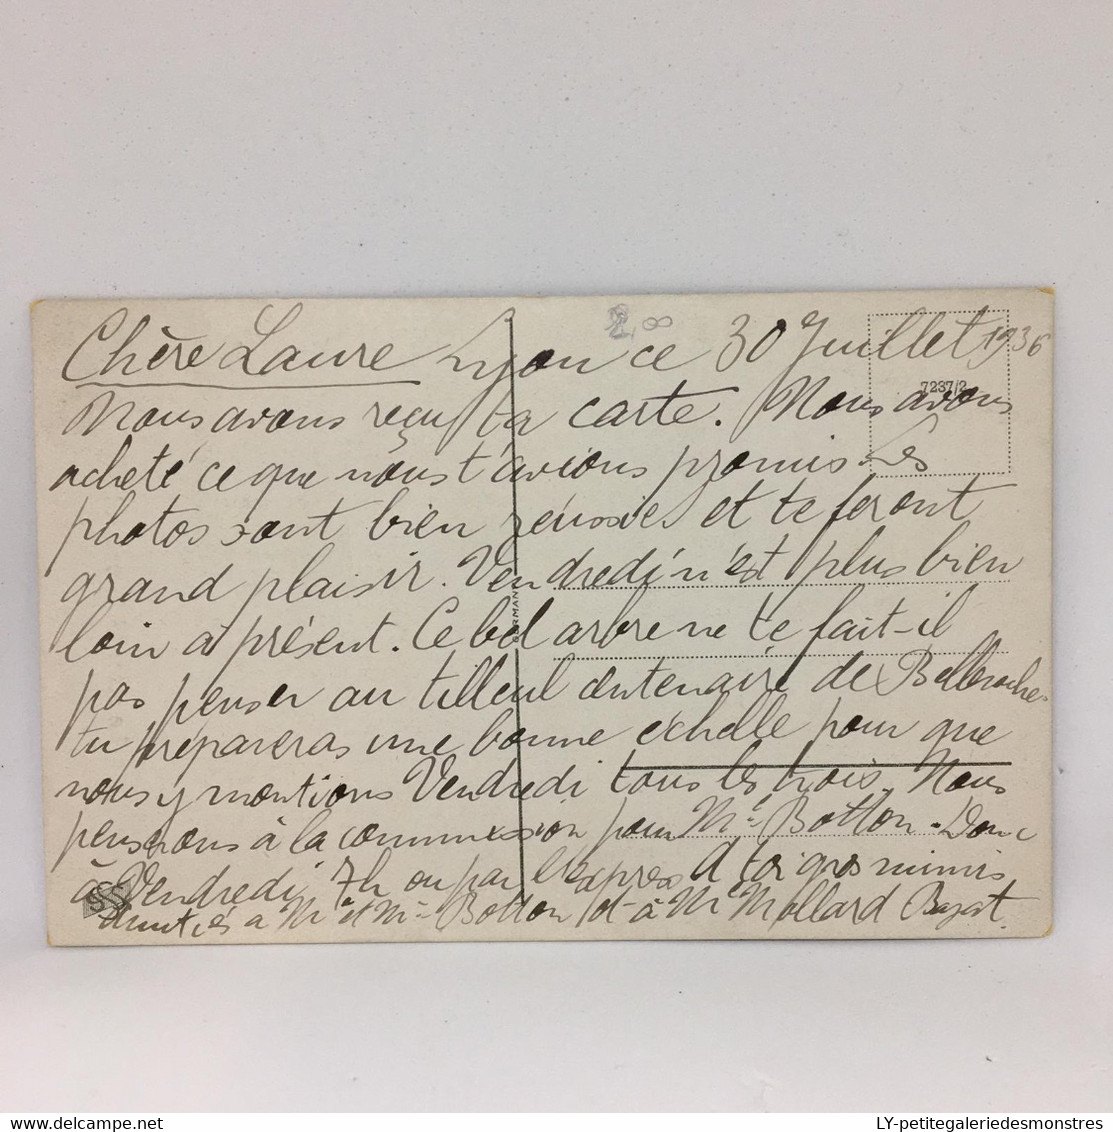 2,00
Chère Laure Lyon ce 30 Juillet 1936
7237/2
Nous avons reçu ta carte. Nous avons
acheté ce que nous t'avions promis Les
photos sont bien réussies et te feront
grand plaisir. Vendredi n'est plus bien
loin à présent. Ce bel arbre ne te fait-il
pas penser au tilleul centenaire de Belleroche
tu prépareras une bonne échelle pour que
nous y montions Vendredi tous les trois. Nous
penserons à la commission pour Mme Botton. Donc
à Vendredi 7h ou par l'express A toi gros mimis
Amitiés à Mr et Mme Botton et à Mr Mollard
SS
LY-petitegaleriedesmonstres
delcampe.net